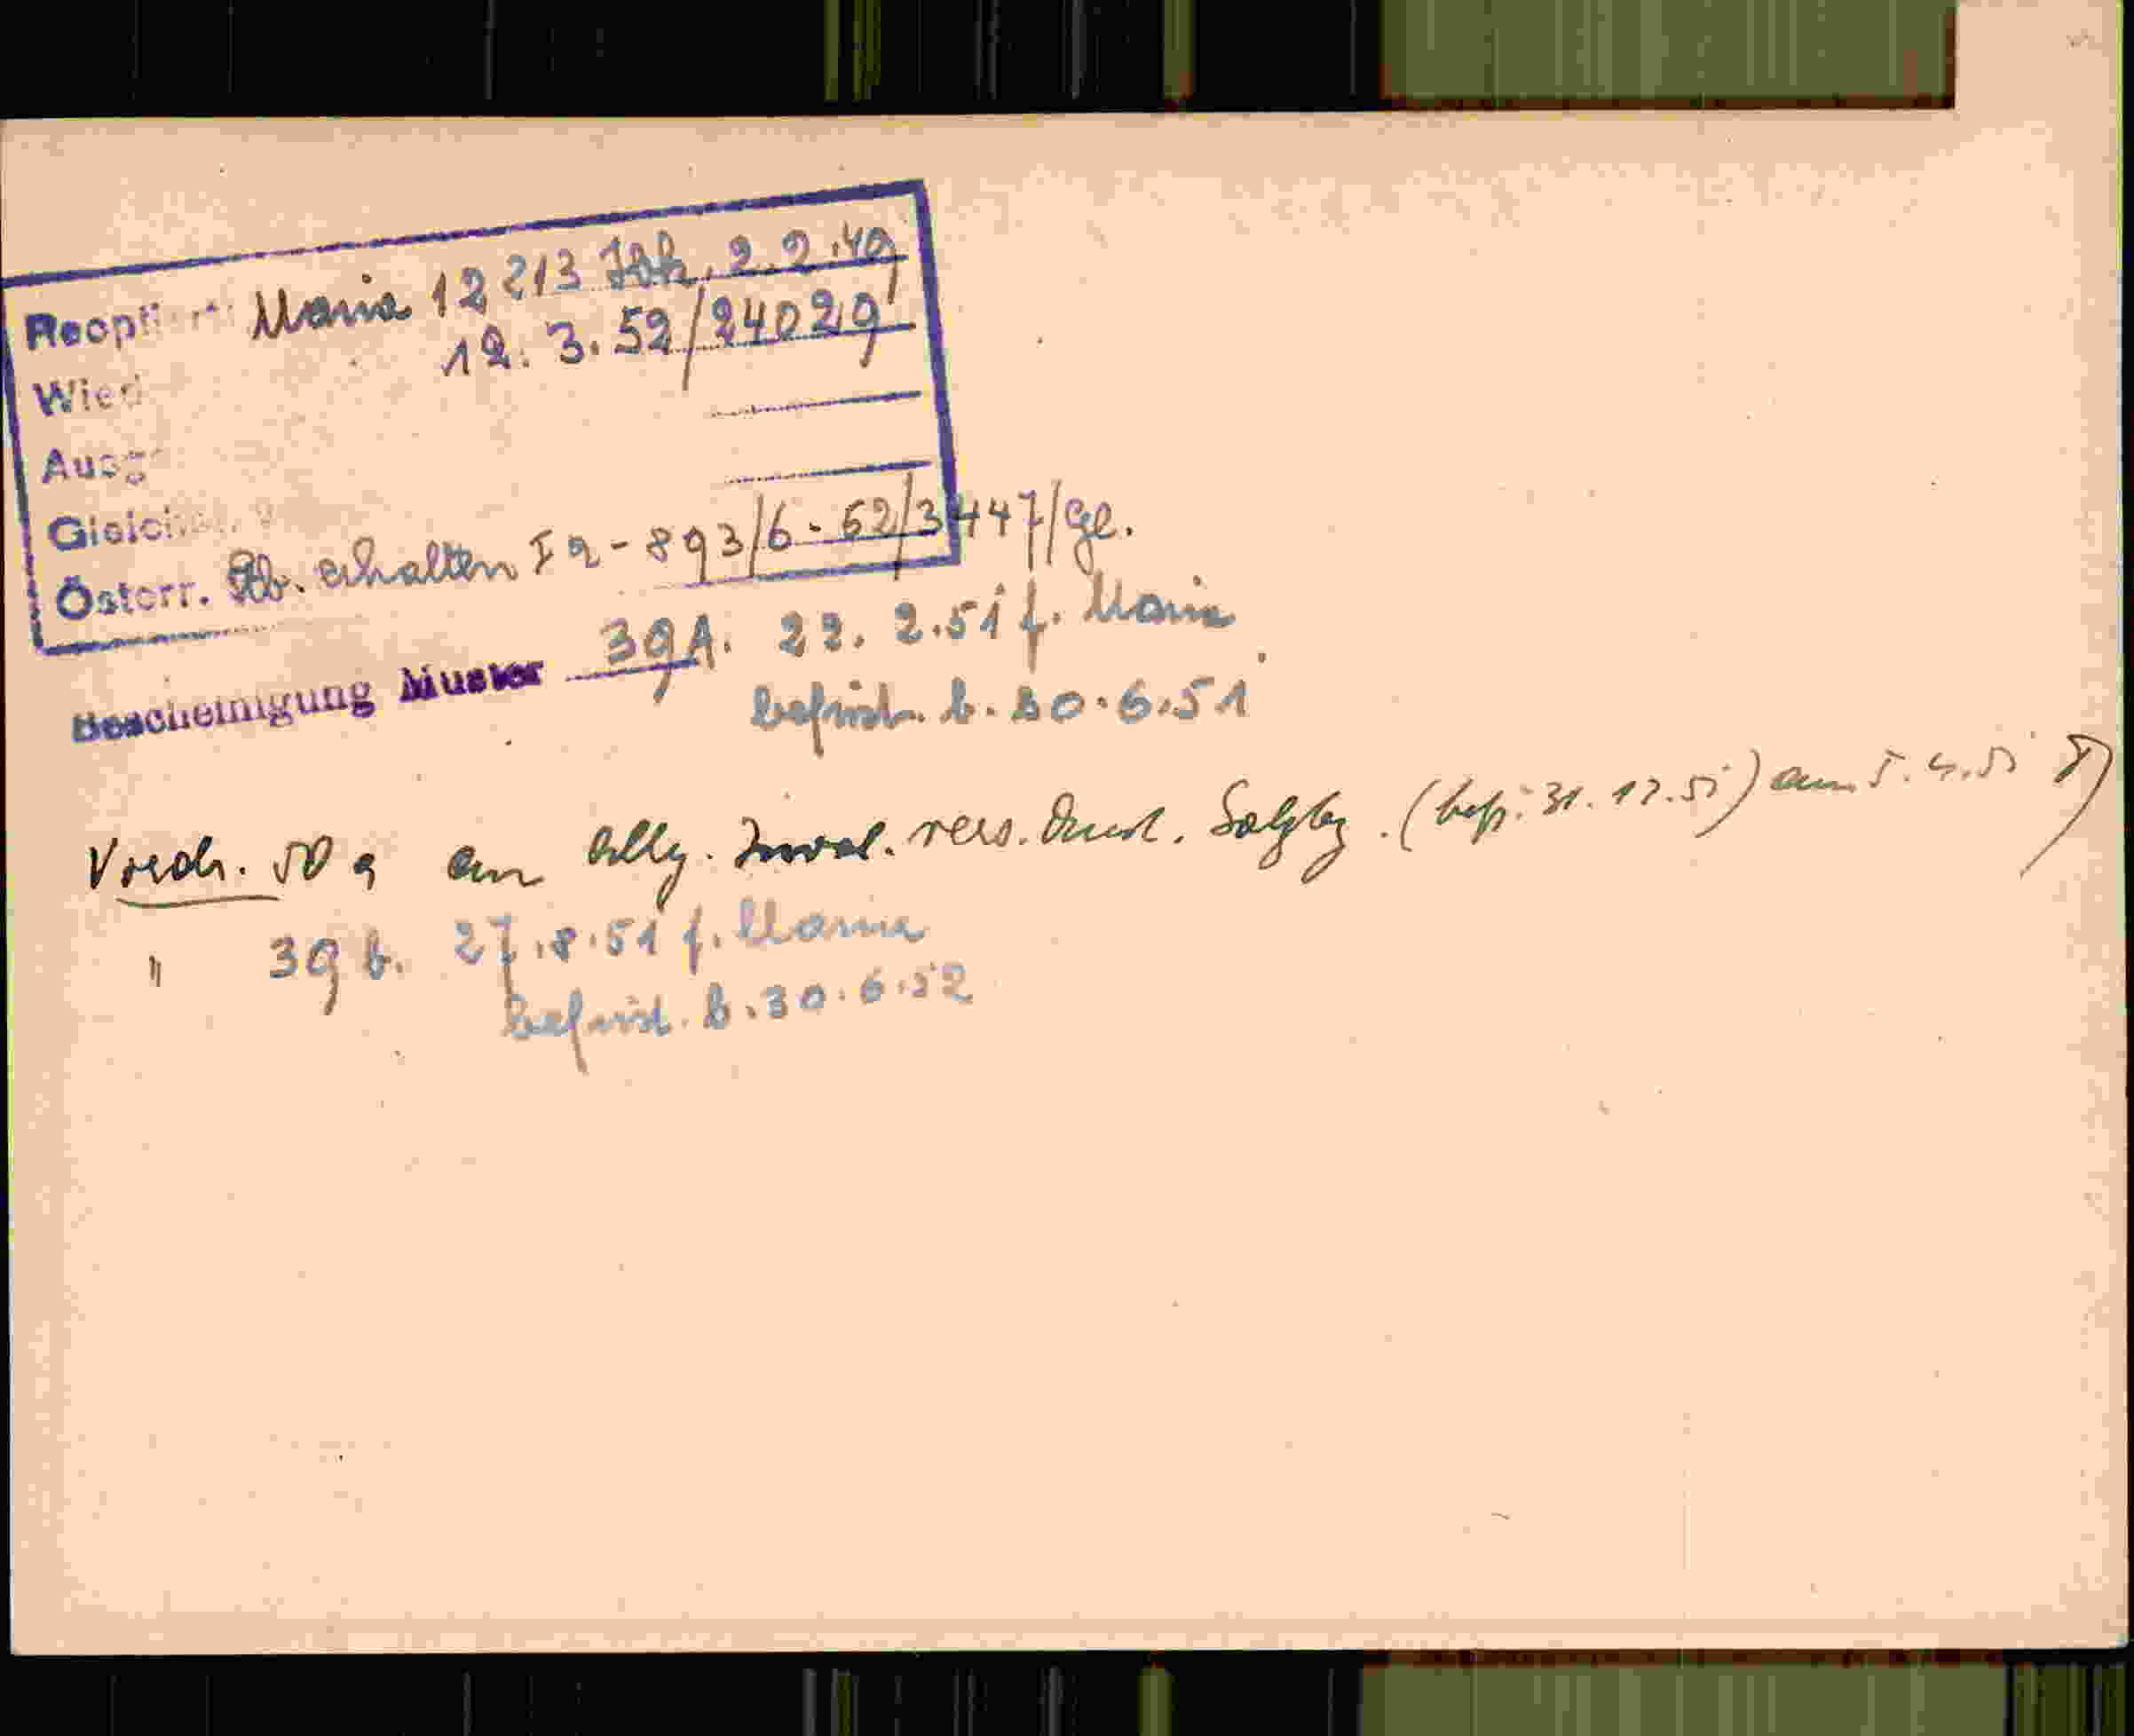 Maria 12213 2.2.49
12.3.52/24029
Wied
Ausg
Österr. Stb. erhalten I a - 893/6 - 52/3447/Ge.
Bescheinigung Muster 39A. 22. 2.51 f. Maria
befrist. b. 30.6.51
Vordr. 50 a an Allg. Inval. vers. Anst. Salzbg. (befr. 31.12.51) am 5.4.51
" 39 b. 27.8.51 f. Maria
befrist. b. 30.6.52